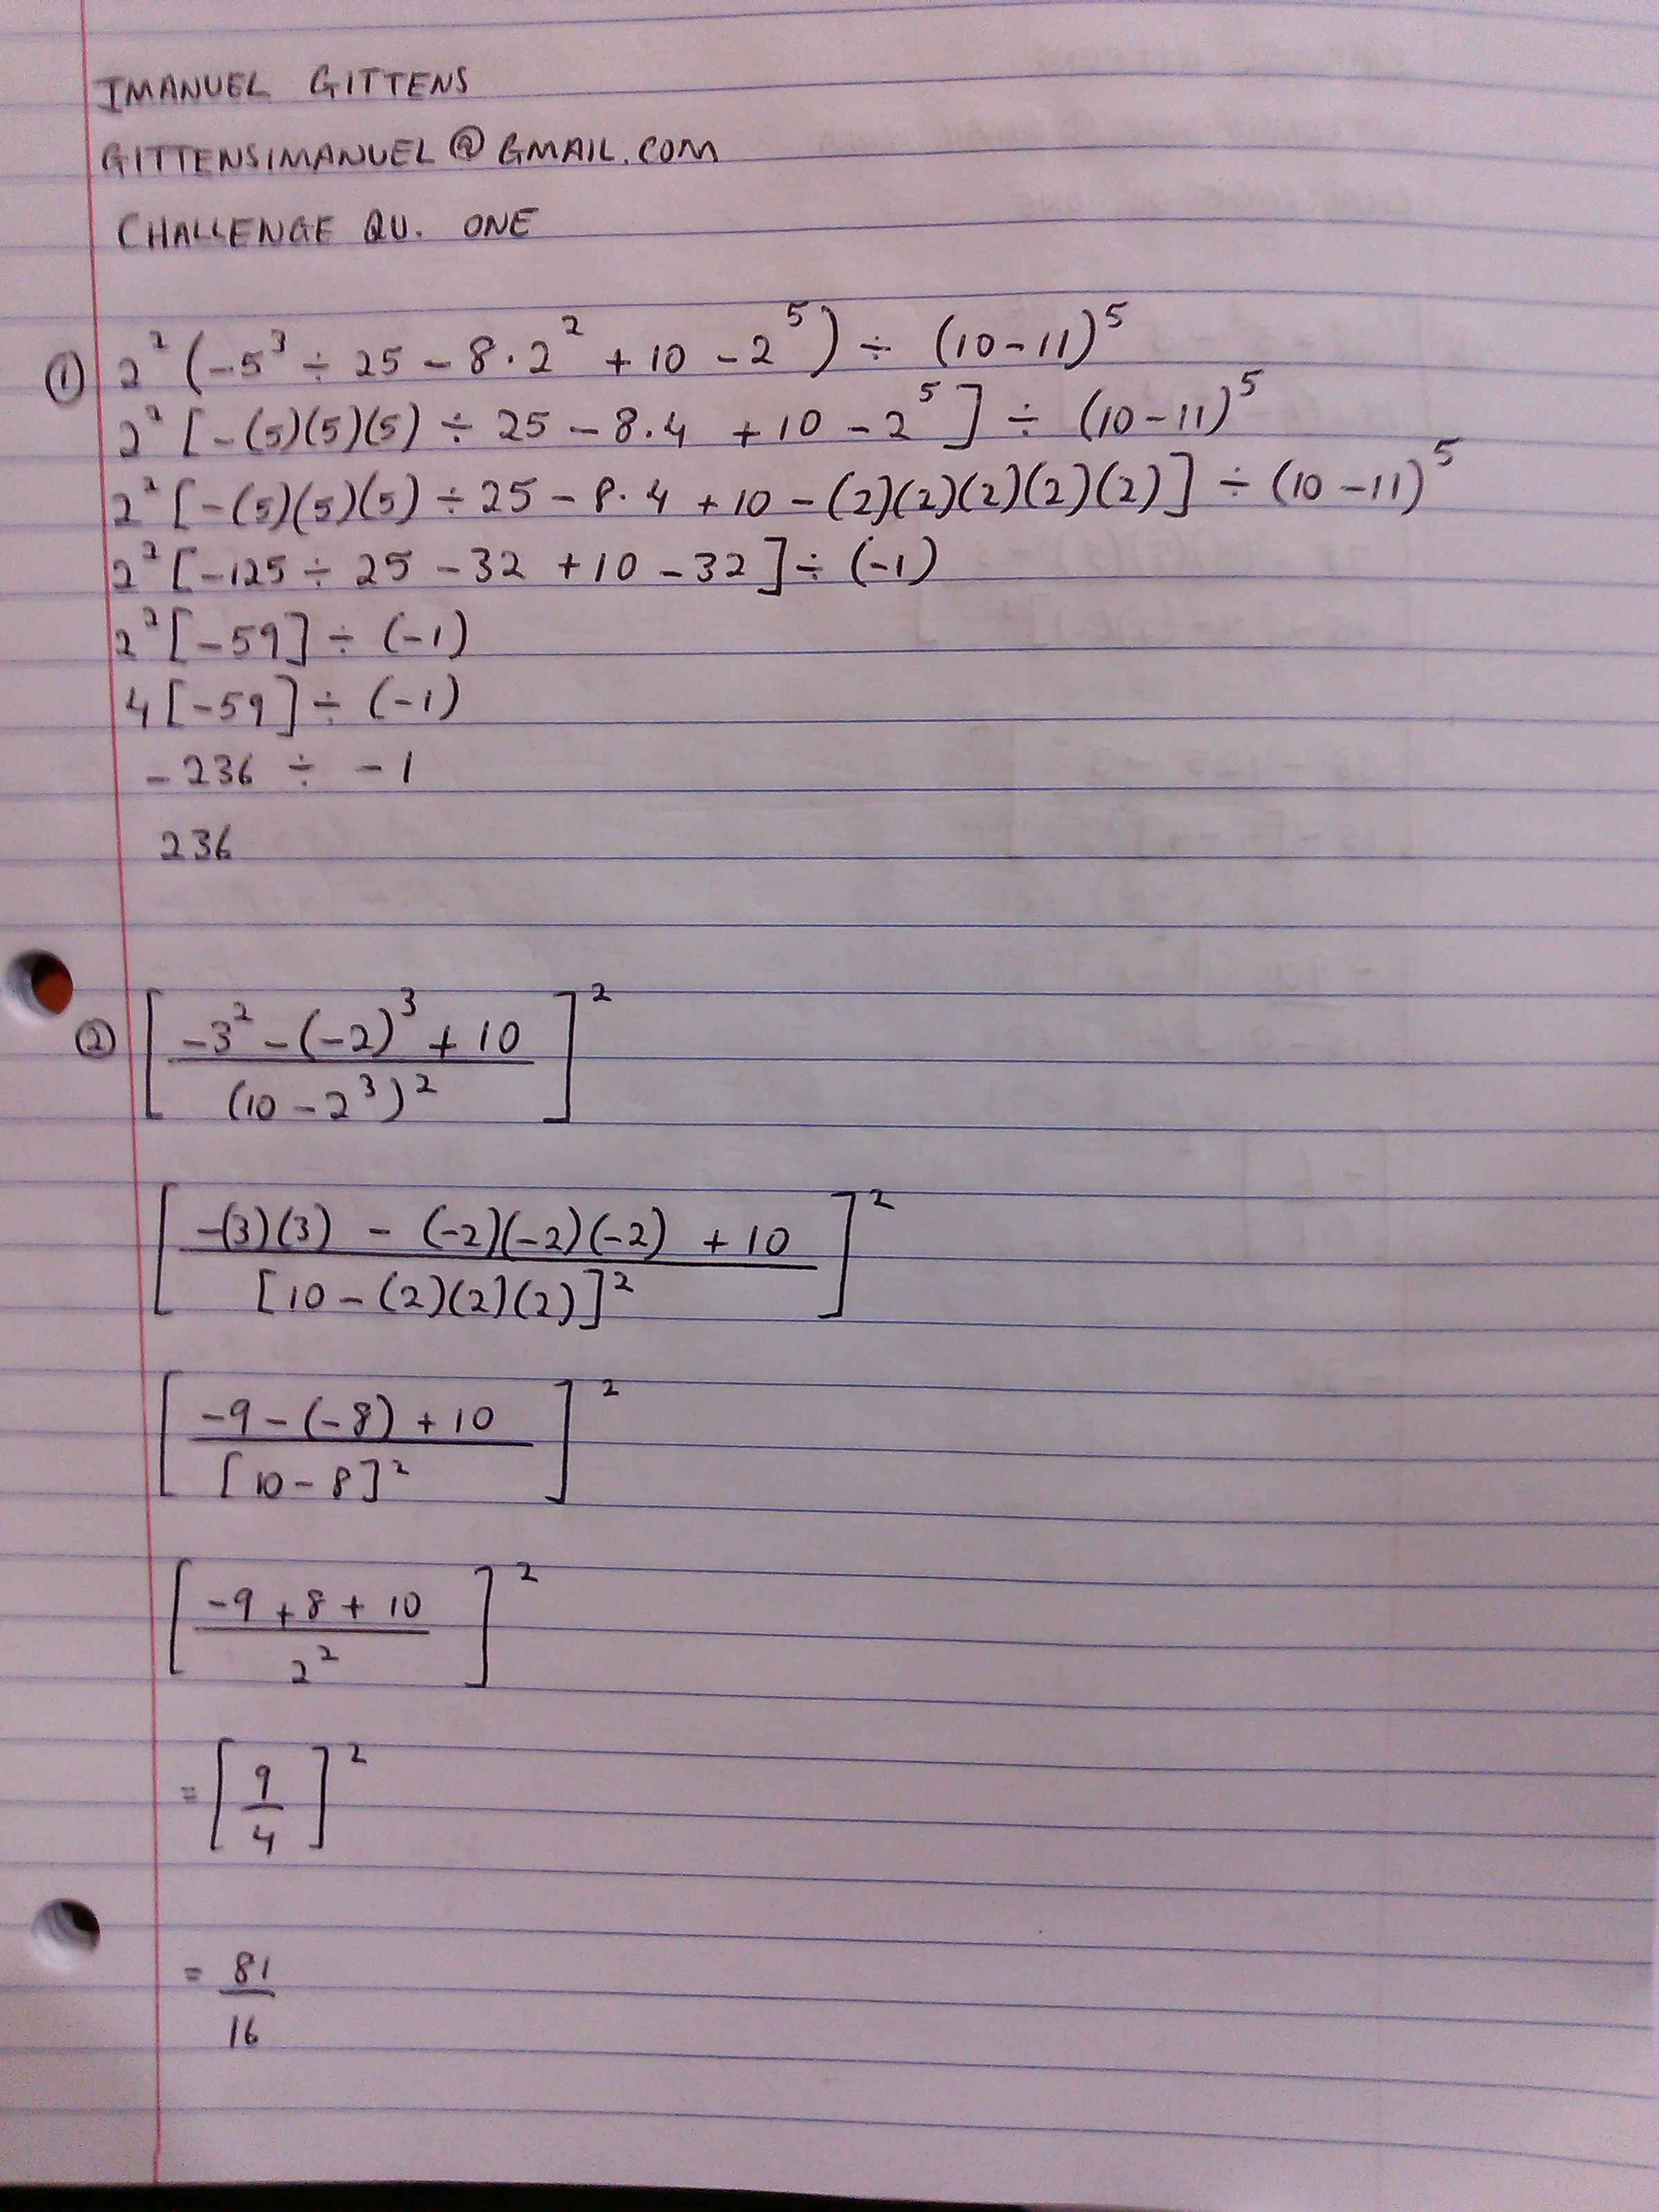 IMANUEL GITTENS
GITTENSIMANUEL@GMAIL.COM
CHALLENGE QU. ONE
① 2² (-5³ ÷ 25 - 8 · 2² + 10 - 2⁵) ÷ (10-11)⁵
2² [-(5)(5)(5) ÷ 25 - 8.4 + 10 - 2⁵] ÷ (10-11)⁵
2² [-(5)(5)(5) ÷ 25 - 8.4 + 10 - (2)(2)(2)(2)(2)] ÷ (10-11)⁵
2² [-125 ÷ 25 - 32 + 10 - 32] ÷ (-1)
2² [-59] ÷ (-1)
4 [-59] ÷ (-1)
-236 ÷ -1
236
② [ -3² - (-2)³ + 10 ]²
(10 - 2³)²
[ -(3)(3) - (-2)(-2)(-2) + 10 ]²
[10 - (2)(2)(2)]²
[ -9 - (-8) + 10 ]²
[10 - 8]²
[ -9 + 8 + 10 ]²
2²
= [ 9 ]²
4
= 81
16